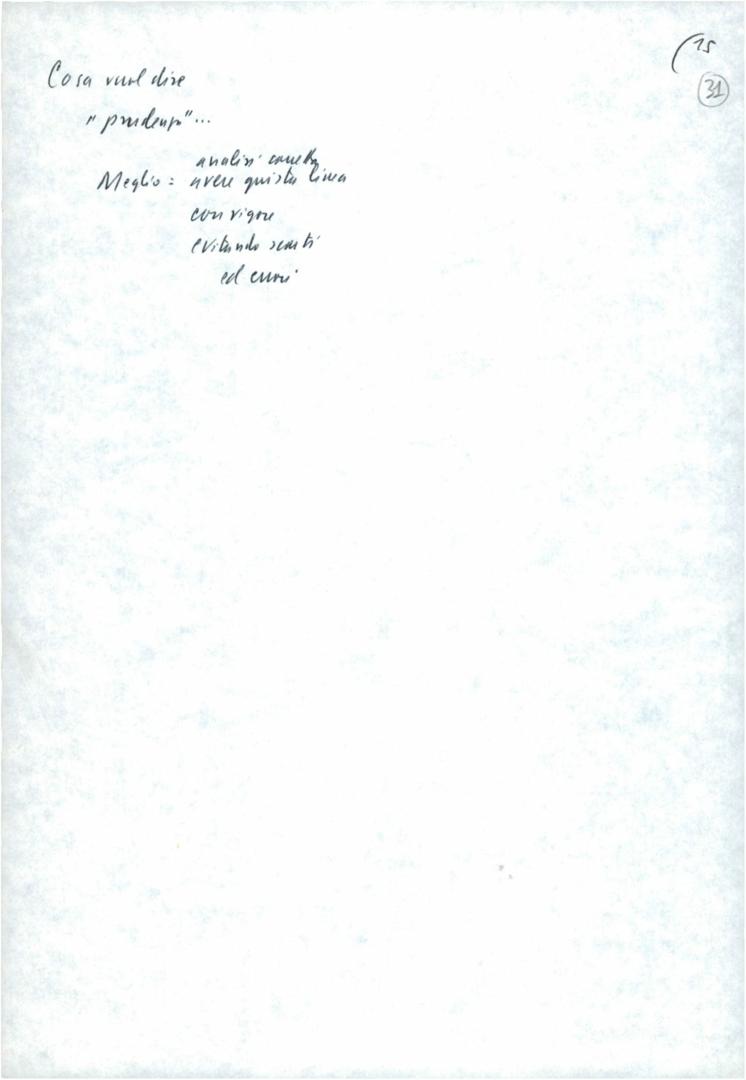 (15
31
Cosa vuol dire
"prudenza"...
analisi corretta
Meglio: avere giusta linea
con vigore
evitando scarti
ed errori